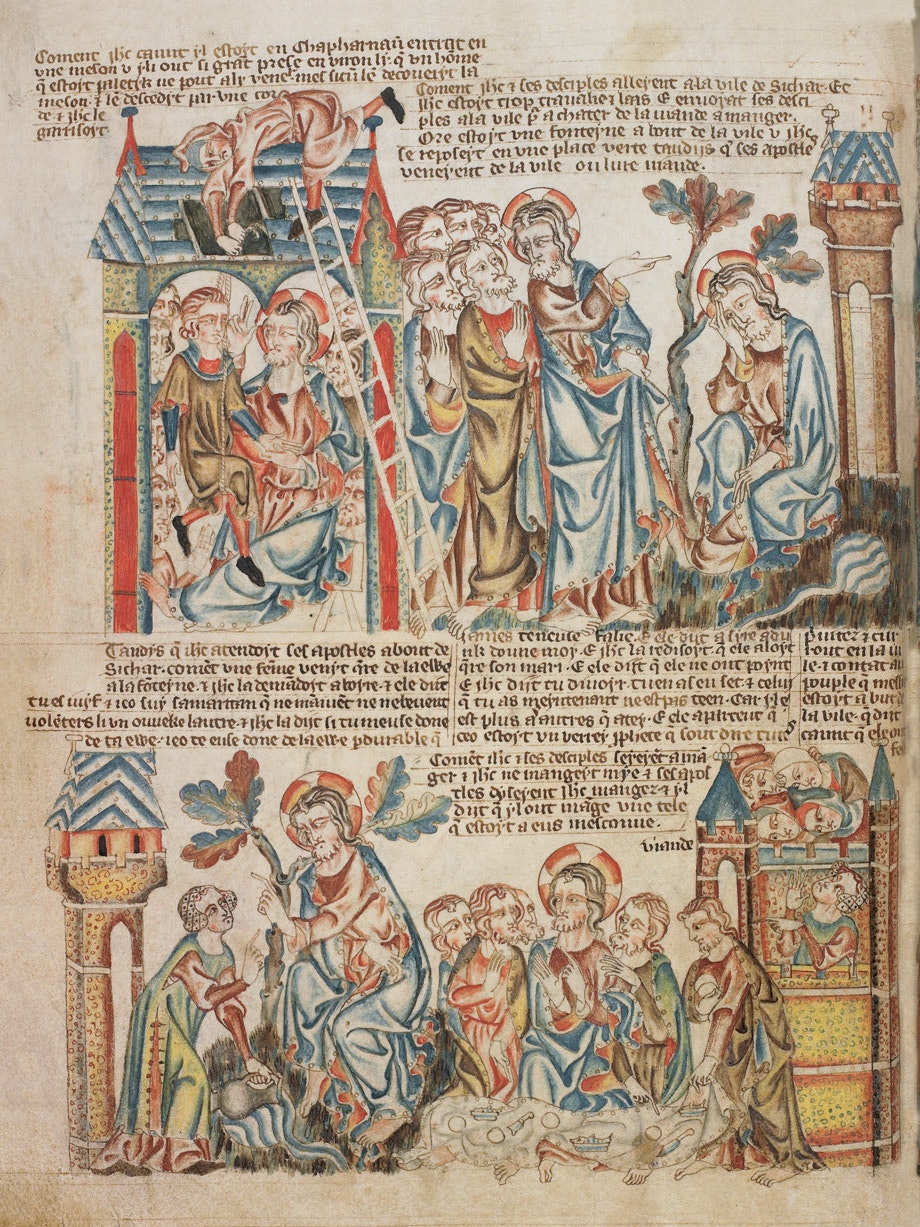 Coment ihc caunt yl estoyt en Chapharnaū entrat en
vne meson v yli out si grāt prese en viron ly q̄ vn hōme
q̄ estoyt paletyk ne pout aly venē mes sicū lē decoueryt la
meson ⁊ lē descēdyt par vne cor
de ⁊ ihc le
garisoyt
Coment ihc ⁊ ses desciples alleyent ala vile de Sichar. Et
ihc estoyt trop trauailie ⁊ laas E enuoyat ses desci
ples ala vile p̄ achater de la viande a manger.
Ore estoyt vne fonteyne a bout de la vile v ihc
se reposeyt en vne place verte taudijs q̄ ses apostle
veneyent de la vile ou lure viande.
Taudys q̄ ihc atendoyt ses apostles about de
Sichar. comēt vne femē venyt q̄re de la ewe
a la foteyne. ⁊ ihc la demādoyt a boyre. ⁊ ele dist
tu es iuyf ⁊ ieo suy samaritan q̄ ne māuēt ne beuent
volēters li vn ouweke lautre. ⁊ ihc la dist si tu meuse done
de ta ewe. ieo te euse done de la ewe pdurable q̄
iames teneuse falie. E ele dist a syre adū
k doune moy. E ihc la redisoyt. q̄ ele aloyt
q̄re son mari. E ele dist q̄ ele ne out poynt
E ihc dist tu divoyr. tu en as eu set ⁊ celui
q̄ tu as meyntenant ne est pas teen. Car yle
est plus a autres q̄ atey. E ele aparceut q̄
ceo estoyt vn verrey pphete q̄ sout dire tut
puitez ⁊ cur
rout en la vi
le. ⁊ contat au
pouple q̄ mes
estoyt a but d
la vile. q̄ dist
caunt q̄ ele ou
fet
Comēt ihc ⁊ les desciples sereyēt a mā
ger ⁊ ihc ne mangeyt mye ⁊ ses apos
tles dyseyent ihc mangez ⁊ yl
dist q̄ yl out māge vne tele
q̄ estoyt a eus mesconue.
viande